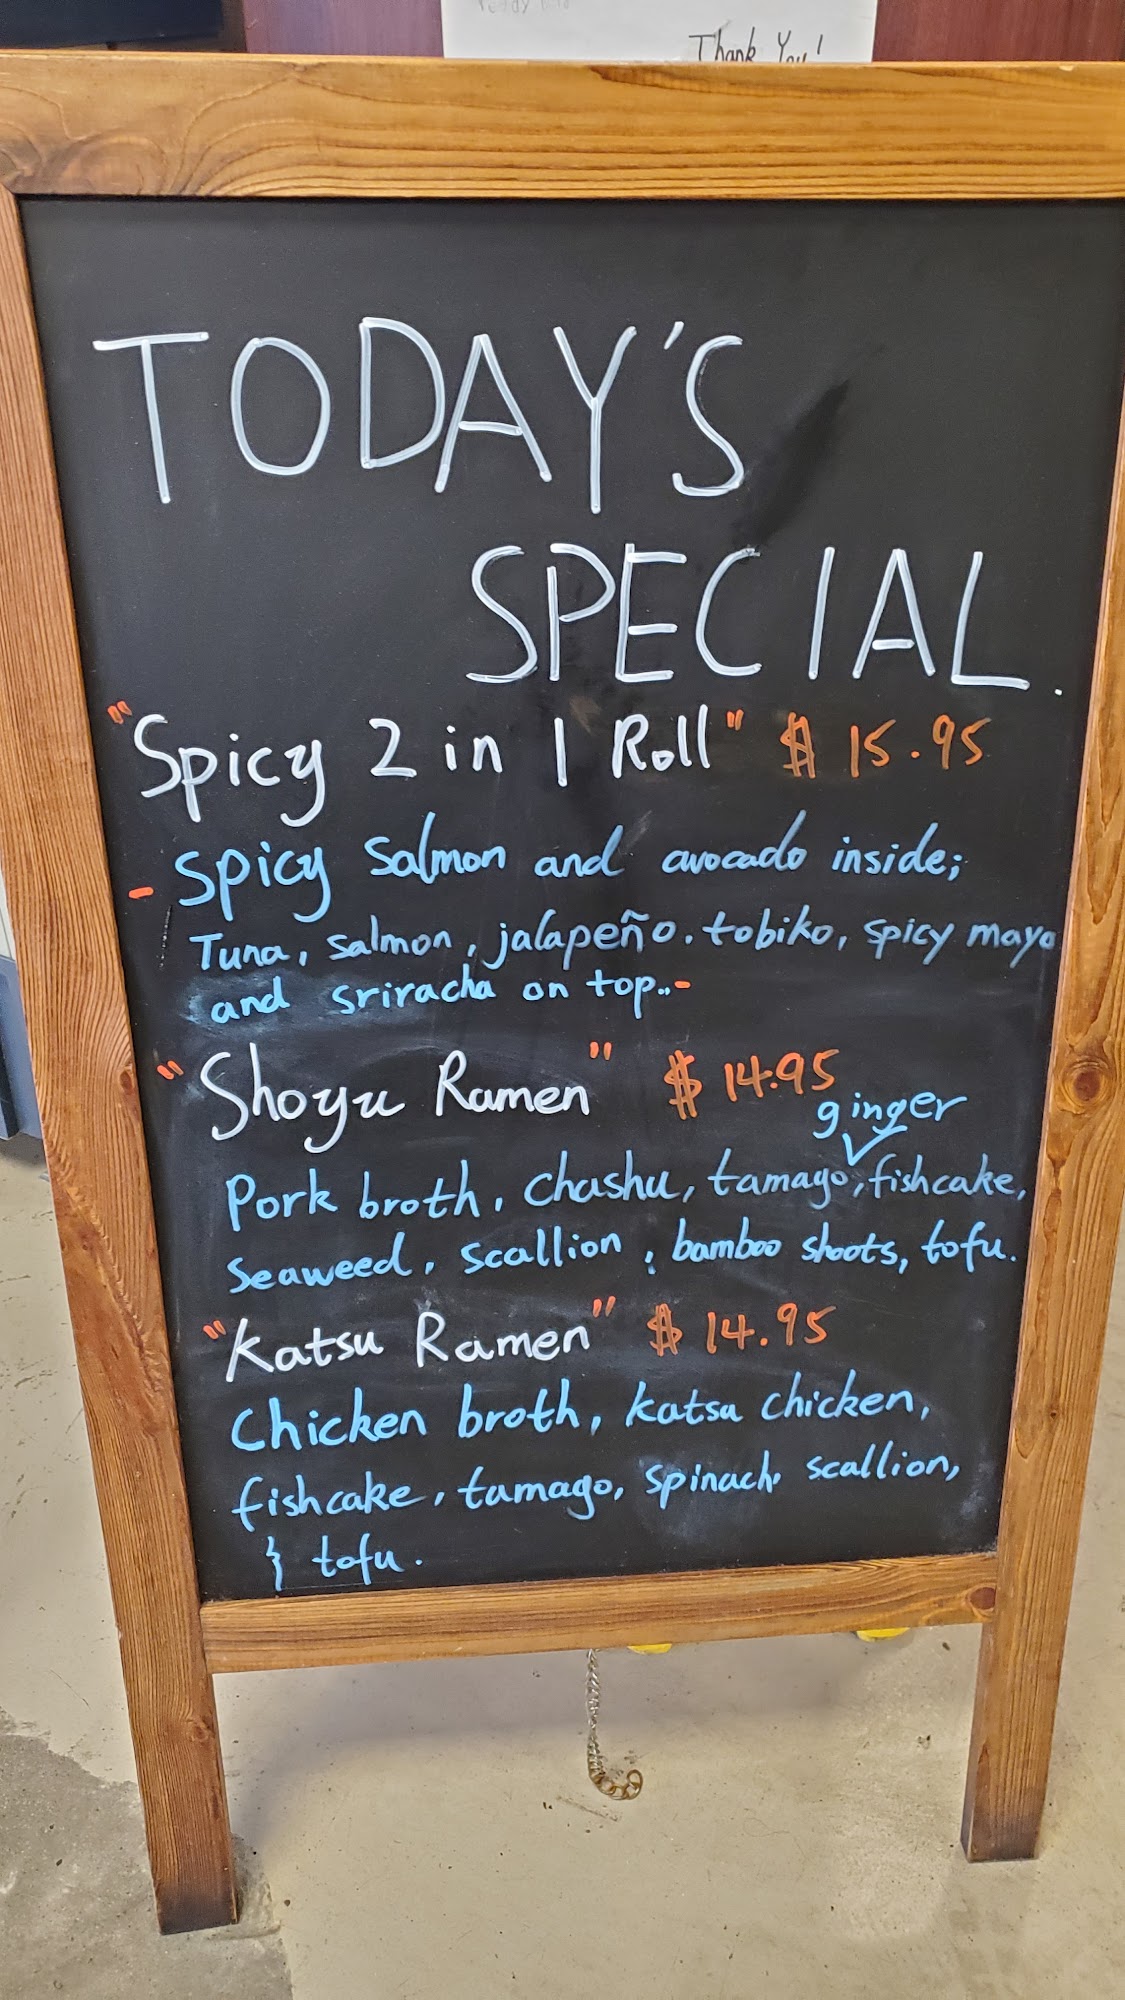 Thank You!
TODAY'S
SPECIAL.
"Spicy 2 in 1 Roll" $ 15.95
- Spicy Salmon and avocado inside;
Tuna, salmon, jalapeño. tobiko, spicy mayo
and sriracha on top..-
"Shoyu Ramen" $ 14.95
ginger
Pork broth, chashu, tamago, fishcake,
seaweed, scallion, bamboo shoots, tofu.
"Katsu Ramen" $ 14.95
Chicken broth, katsu chicken,
fishcake, tamago, spinach, scallion,
} tofu.